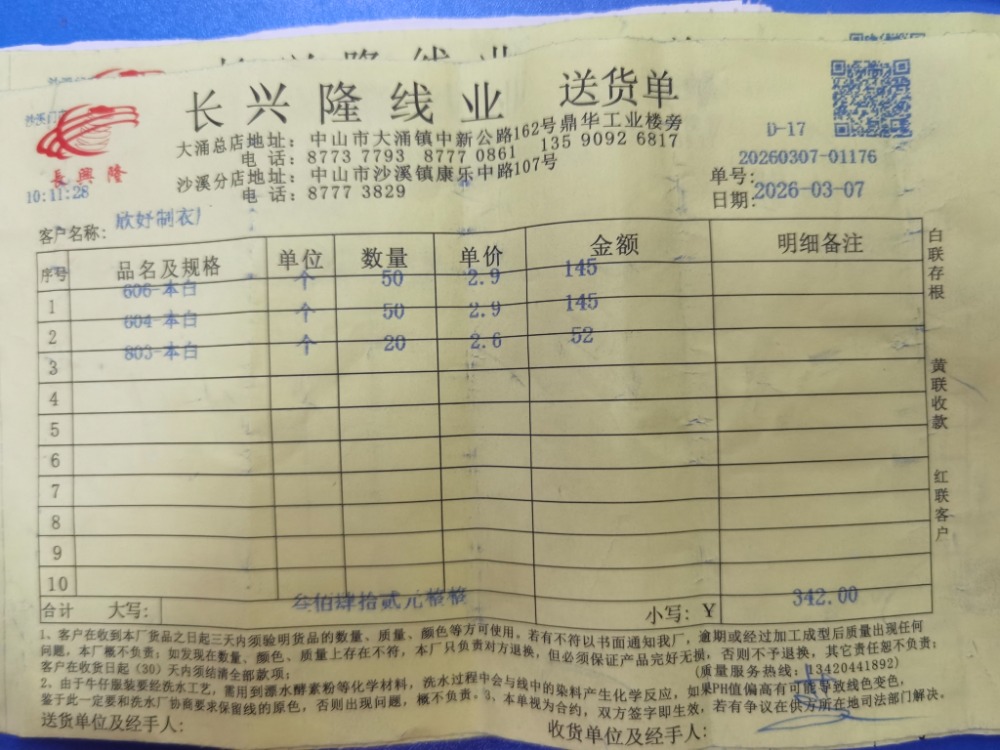 长兴隆线业 送货单
長興隆
大涌总店地址：中山市大涌镇中新公路162号鼎华工业楼旁
电话：8773 7793 8777 0861 135 9092 6817
沙溪分店地址：中山市沙溪镇康乐中路107号
电话：8777 3829
10:11:28
D-17
单号：20260307-01176
日期：2026-03-07
客户名称：欣妤制衣厂
序号 品名及规格 单位 数量 单价 金额 明细备注
1 606-本白 个 50 2.9 145
2 604-本白 个 50 2.9 145
3 803-本白 个 20 2.6 52
4
5
6
7
8
9
10
合计 大写： 叁佰肆拾贰元整整 小写：Y 342.00
白联存根
黄联收款
红联客户
1、客户在收到本厂货品之日起三天内须验明货品的数量、质量、颜色等方可使用。若有不符以书面通知我厂，逾期或经过加工成型后质量出现任何
问题，本厂概不负责；如发现在数量、颜色、质量上存在不符，本厂只负责对方退换，但必须保证产品完好无损，否则不予退换，其它责任恕不负责；
客户在收货日起（30）天内须结清全部款项； (质量服务热线：13420441892)
2、由于牛仔服装要经洗水工艺，需用到漂水酵素粉等化学材料，洗水过程中会与线中的染料产生化学反应，如果PH值偏高有可能导致线色变色，
鉴于此一定要和洗水厂协商要求保留线的原色，否则出现问题，概不负责。3、本单视为合约，双方签字即生效，若有争议在供方所在地司法部门解决。
送货单位及经手人：
收货单位及经手人：